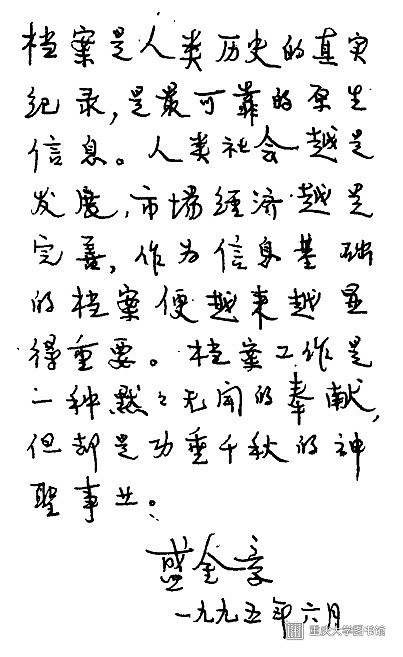 档案是人类历史的真实
纪录，是最可靠的原生
信息。人类社会越是
发展，市场经济越是
完善，作为信息基础
的档案便越来越显
得重要。档案工作是
一种默々无闻的奉献，
但却是功垂千秋的神
聖事业。
盛金章
一九九五年六月
重庆大学图书馆